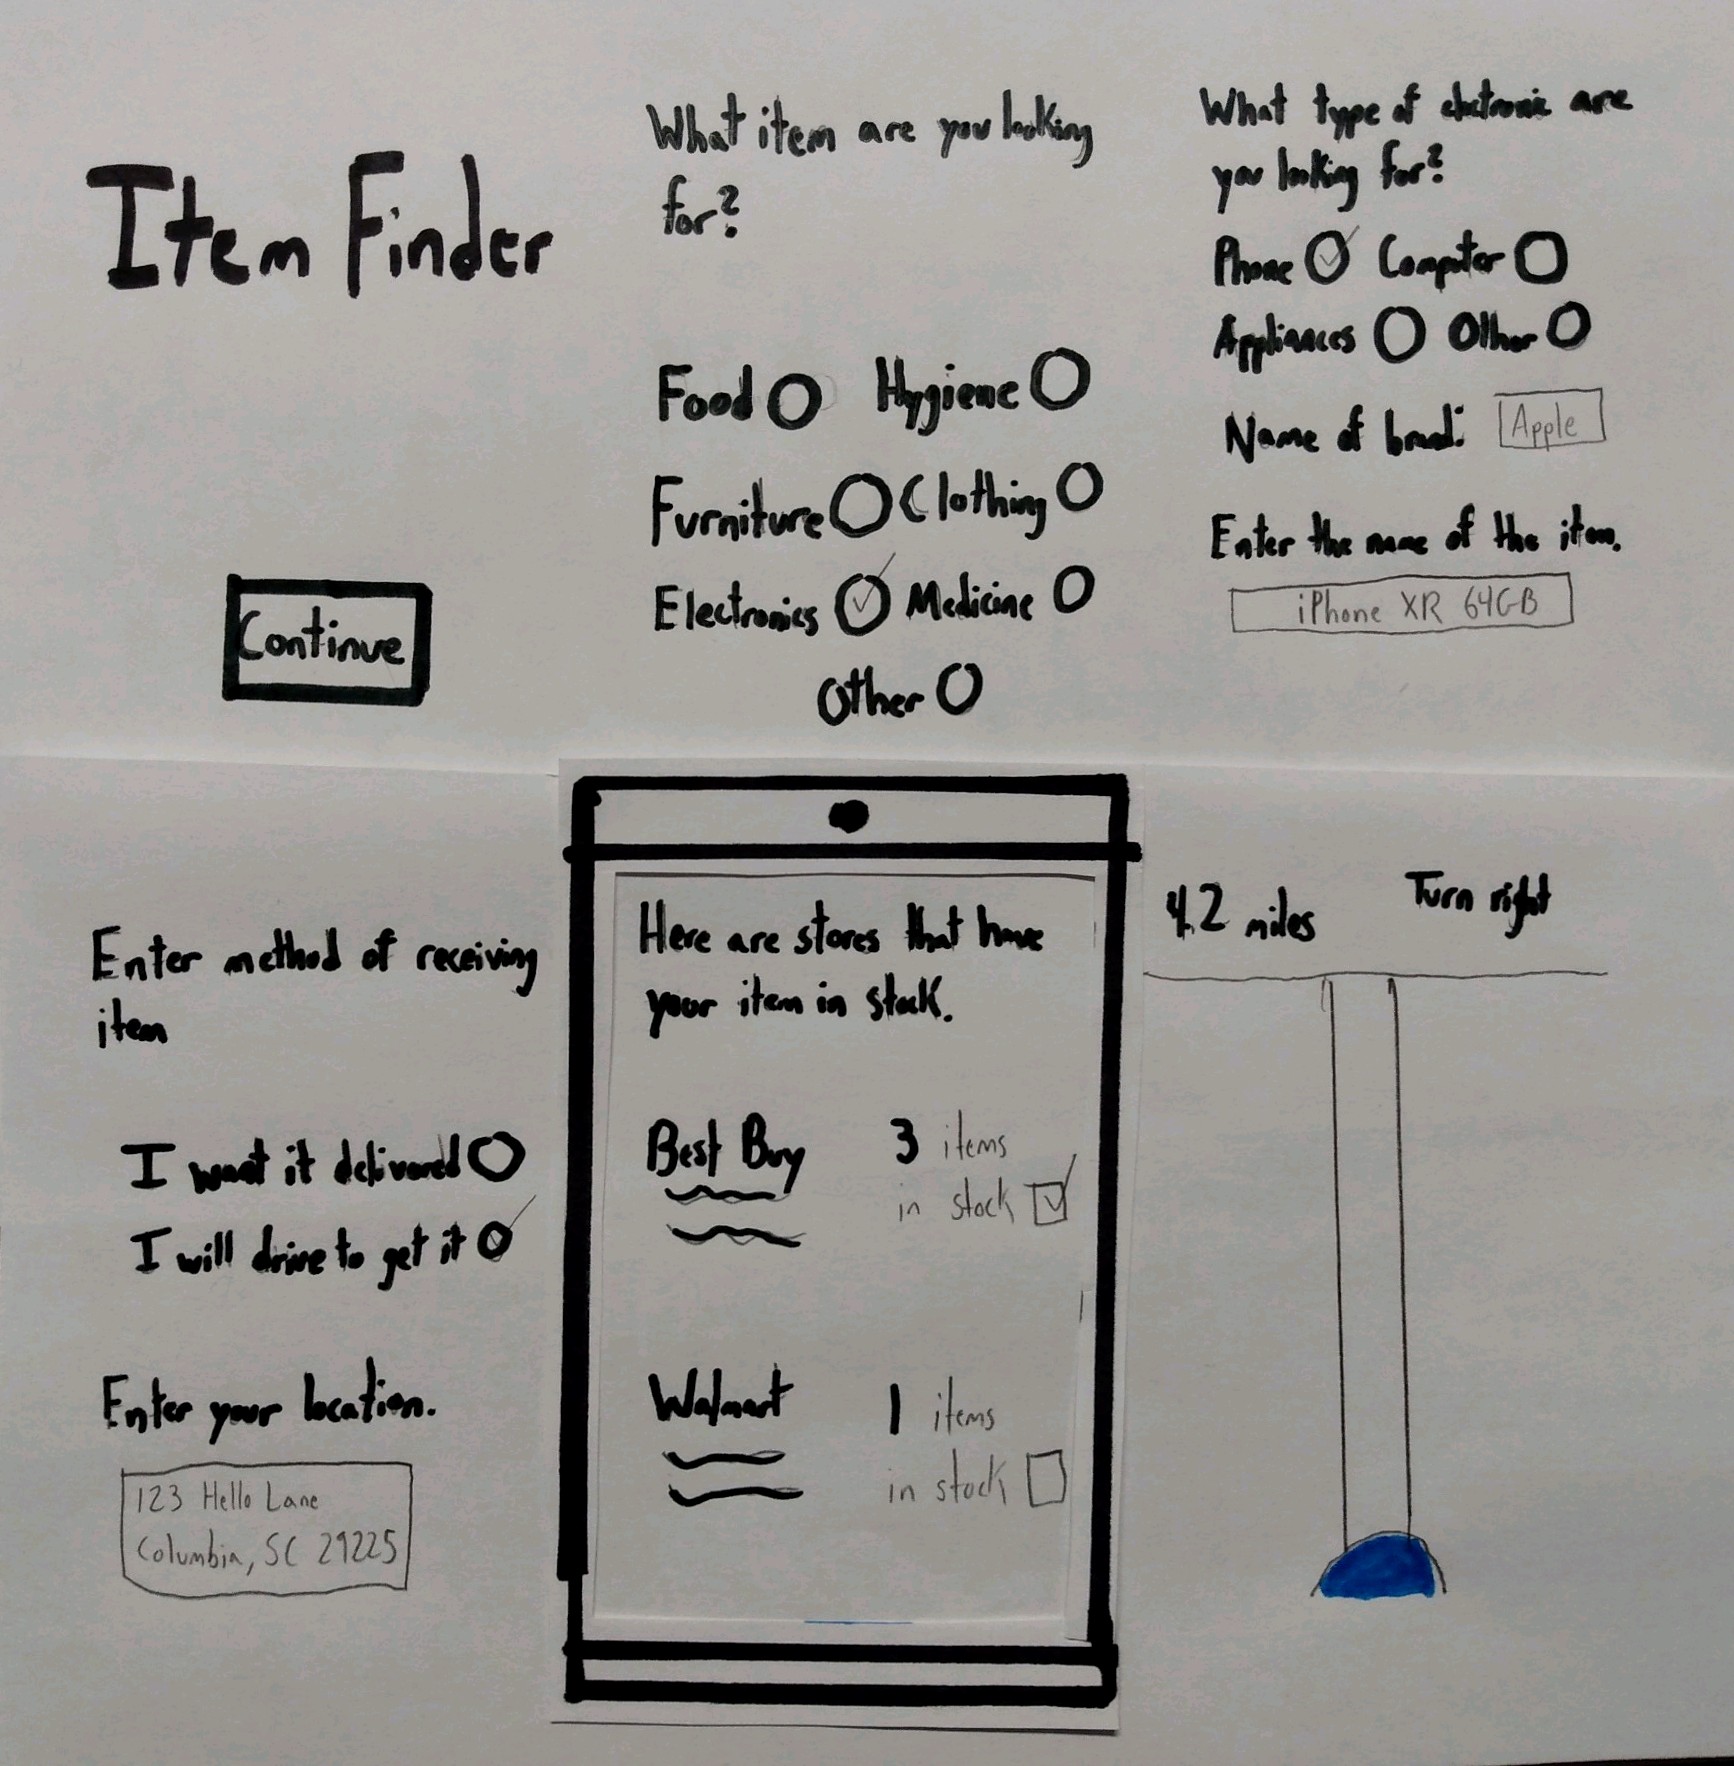 Item Finder
Continue
What item are you looking
for?
Food Hygiene
Furniture Clothing
Electronics Medicine
Other
What type of electronic are
you looking for?
Phone Computer
Appliances Other
Name of brand: Apple
Enter the name of the item.
iPhone XR 64GB
Enter method of receiving
item
I want it delivered
I will drive to get it
Enter your location.
123 Hello Lane
Columbia, SC 29225
Here are stores that have
your item in stock.
Best Buy 3 items
in stock
Walmart 1 items
in stock
4.2 miles Turn right